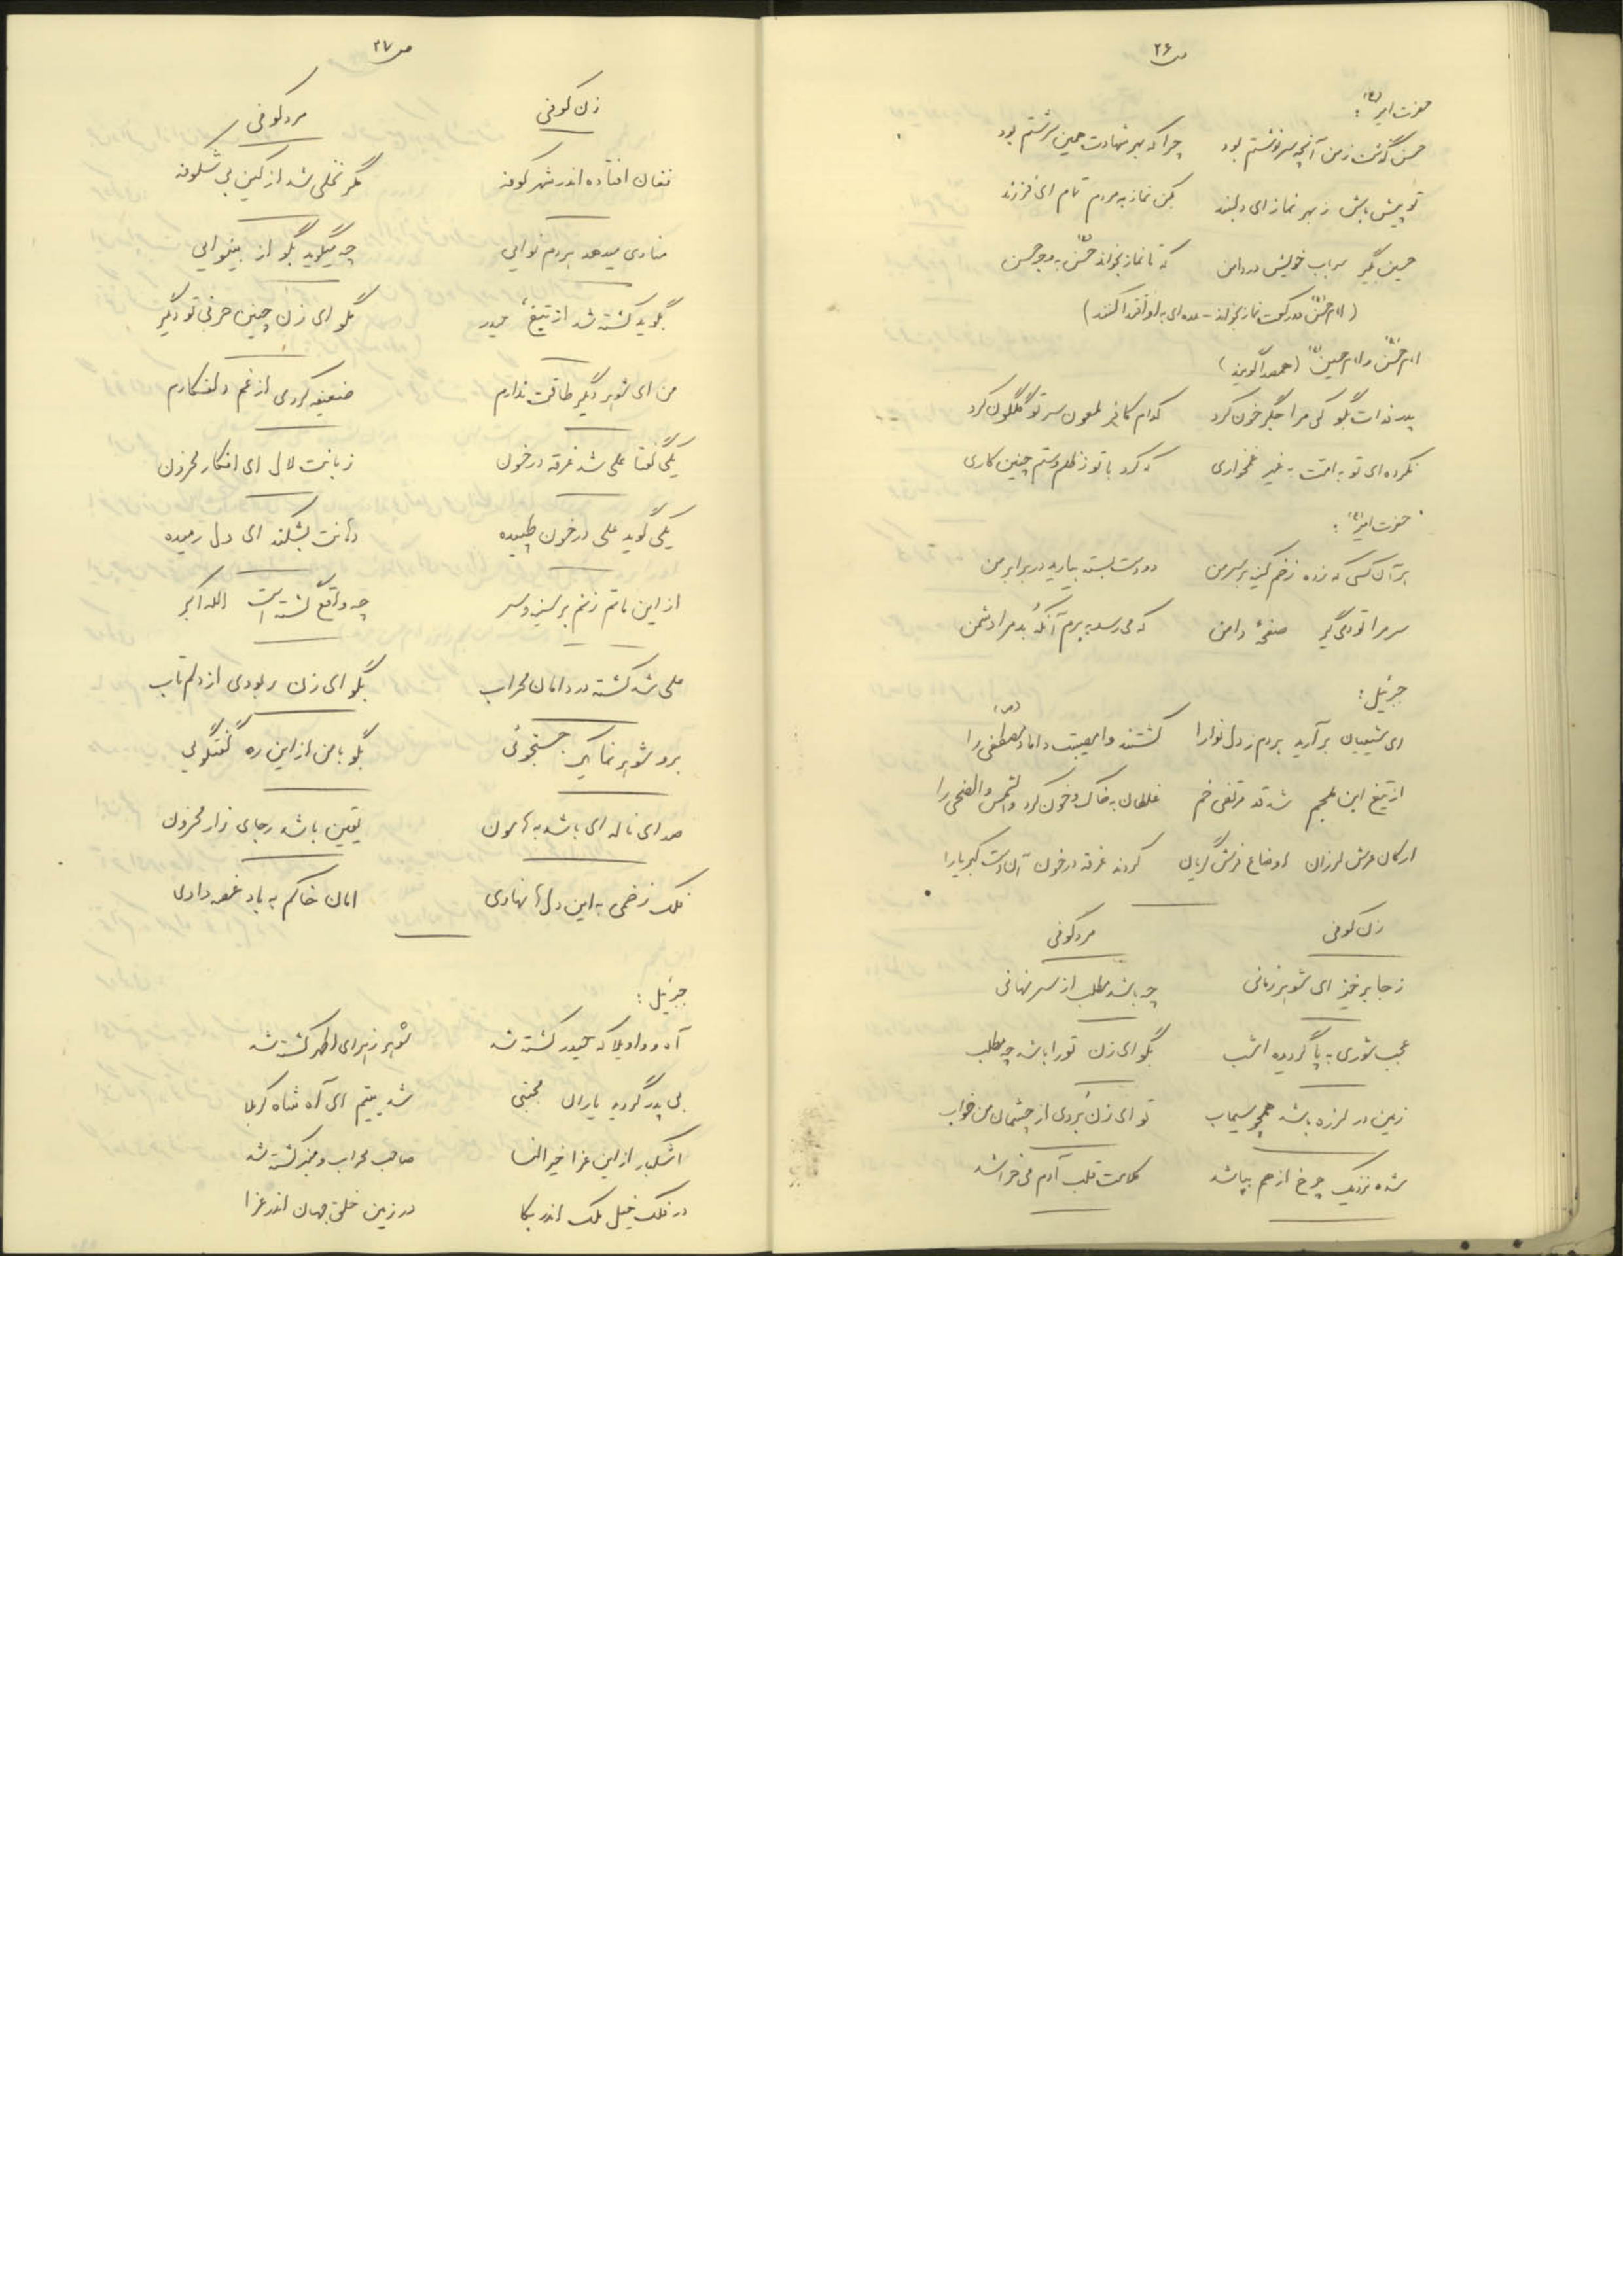 ص ۲۶
حضرت امیر (ع) :
حسن گذشت ز من آنچه سرنوشتم بود چرا که بهر شهادت همین سرشتم بود
تو پیش باش ز بهر نماز ای دلبند بکن نماز به مردم تمام ای فرزند
حسین بگیر سر باب خویش در دامن که تا نماز بخواند حسن به وجه حسن
(امام حسن دو رکعت نماز بخواند - عده‌ای به او اقتدا کنند)
امام حسن (ع) و امام حسین (ع) (همصدا گویند)
پدر فدات بگو کی مرا جگر خون کرد کدام کافر ملعون سر تو گلگون کرد
نکرده‌ای تو به امت به غیر غمخواری که کرد با تو ز ظلم و ستم چنین کاری
حضرت امیر (ع) :
هر آن کسی که زده زخم کینه بر سر من دو دست بسته بیارید در برابر من
سر مرا تو دمی گیر صفحهٔ دامن که می‌رسد به برم آنکه بد مرا دشمن
جبرئیل :
ای شیعیان برآرید هر دم ز دل نوا را کشتند وامصیبت داماد مصطفی (ص) را
از تیغ ابن ملجم شد قد مرتضی خم غلطان به خاک و خون کرد والشمس والضحی را
ارکان عرش لرزان اوضاع فرش گریان کردند غرقه در خون آن دست کبریا را
زن کوفی مرد کوفی
ز جا برخیز ای شوهر زمانی چه باشد مطلب از سر نهانی
عجب شوری به پا گردیده امشب بگو ای زن تو را باشد چه مطلب
زمین در لرزه باشد همچو سیماب تو ای زن بردی از چشمان من خواب
شده نزدیک چرخ از هم بپاشد کلامت قلب آدم می‌خراشد
ص ۲۷
زن کوفی مرد کوفی
فغان افتاده اندر شهر کوفه مگر نخلی شد از کین بی شکوفه
منادی میدهد هر دم نوایی چه میگوید بگو از بینوایی
بگوید کشته شد از تیغ، حیدر مگو ای زن چنین حرفی تو دیگر
من ای شوهر دیگر طاقت ندارم ضعیفه کردی از غم دلفکارم
یکی گفتا علی شد غرقه در خون زبانت لال ای افکار محزون
یکی گوید علی در خون طپیده دهانت بشکند ای دل رمیده
از این ماتم زنم بر سینه و سر چه واقع گشته است الله اکبر
علی شد کشته در دامان محراب بگو ای زن ربودی از دلم تاب
برو شوهر نما یک جستجوئی بگو با من از این ره گفتگویی
صدای ناله‌ای باشد به هامون یقین باشد رجای زار محزون
فلک زخمی به این دلها نهادی امان خاکم به باد غصه دادی
جبرئیل :
آه و واویلا که حیدر کشته شد شوهر زهرای اطهر کشته شد
بی پدر گردید یاران مجتبی شد یتیم ای آه شاه کربلا
اشکبار از این عزا خیرالنسا صاحب محراب و منبر کشته شد
در فلک خیل ملک اندر بکا در زمین خلق جهان اندر عزا